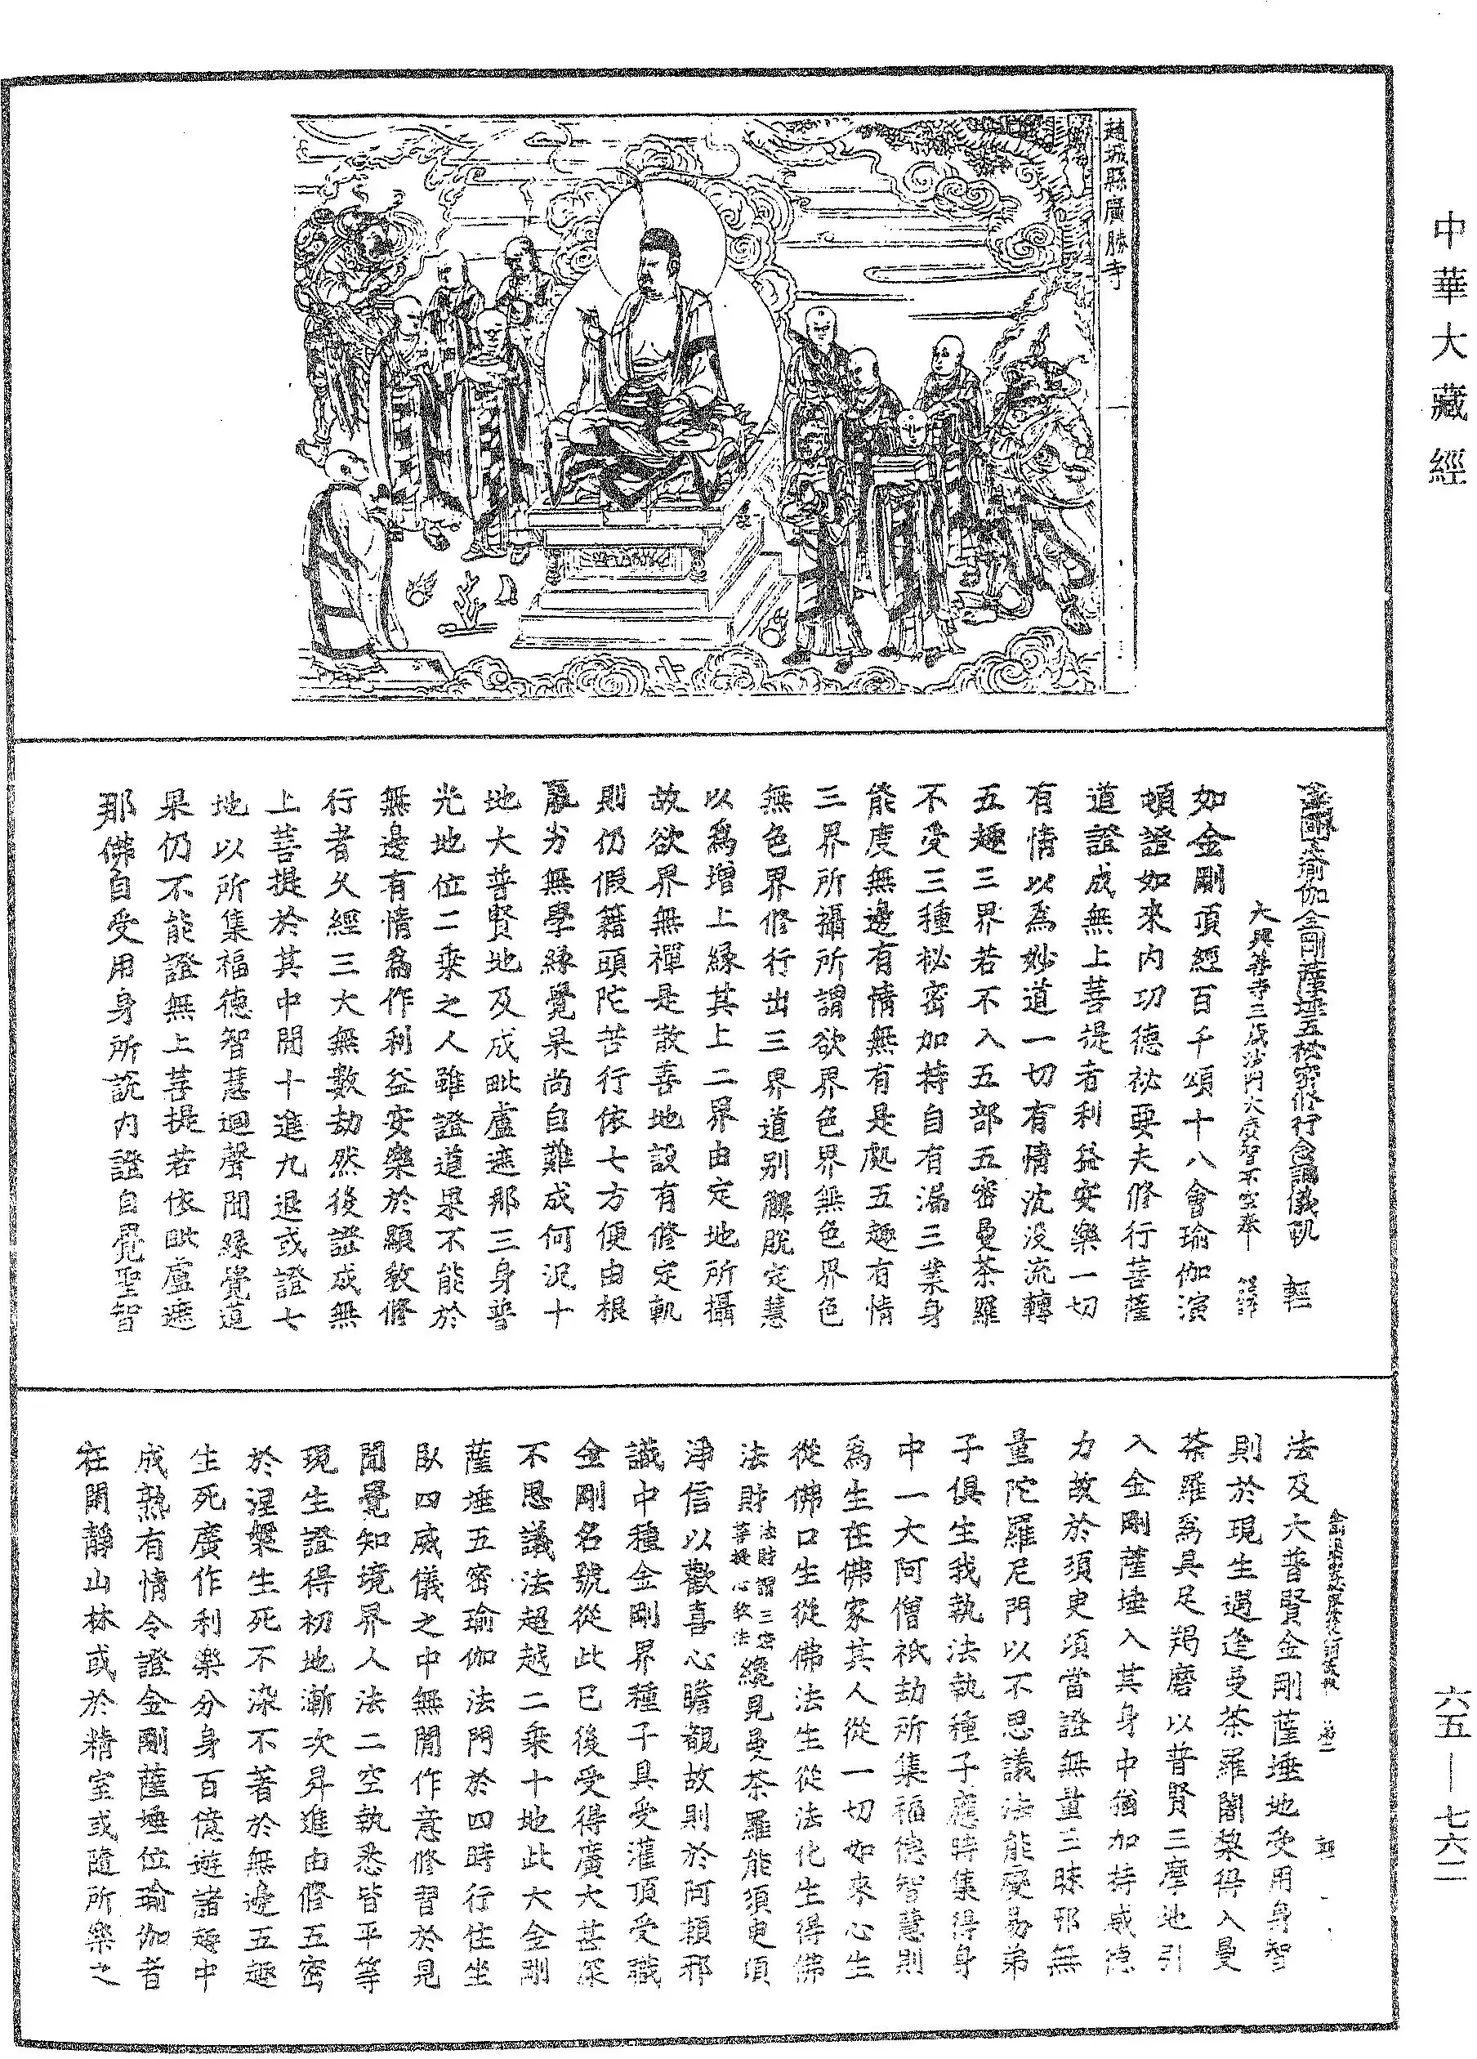 中華大藏經
六五—七六二
趙城縣廣勝寺
金剛頂瑜伽金剛薩埵五秘密修行念誦儀軌 輕
大興善寺三藏沙門大廣智不空奉 詔譯
如金剛頂經百千頌十八會瑜伽演
頓證如來內功德祕要夫修行菩薩
道證成無上菩提者利益安樂一切
有情以為妙道一切有情沈没流轉
五趣三界若不入五部五密曼茶羅
不受三種祕密加持自有漏三業身
能度無邊有情無有是處五趣有情
三界所攝所謂欲界色界無色界色
無色界修行出三界道别解脫定慧
以為增上緣其上二界由定地所攝
故欲界無禪是散善地設有修定軌
則仍假籍頭陀苦行依七方便由根
羸劣無學緣覺果尚自難成何況十
地大普賢地及成毗盧遮那三身普
光地位二乘之人雖證道果不能於
無邊有情為作利益安樂於顯教修
行者久經三大無數劫然後證成無
上菩提於其中間十進九退或證七
地以所集福德智慧迴聲聞緣覺道
果仍不能證無上菩提若依毗盧遮
那佛自受用身所說內證自覺聖智
第二 輕
法及大普賢金剛薩埵地受用身智
則於現生遇逢曼茶羅阇黎得入曼
茶羅為具足羯磨以普賢三摩地引
入金剛薩埵入其身中猶加持威德
力故於須臾頃當證無量三昧耶無
量陀羅尼門以不思議法能變易弟
子俱生我執法執種子應時集得身
中一大阿僧祇劫所集福德智慧則
為生在佛家其人從一切如來心生
從佛口生從佛法生從法化生得佛
法財法財謂三密菩提心教法纔見曼茶羅能須臾頃
淨信以歡喜心瞻覩故則於阿賴耶
識中種金剛界種子具受灌頂受職
金剛名號從此已後受得廣大甚深
不思議法超越二乘十地此大金剛
薩埵五密瑜伽法門於四時行住坐
臥四威儀之中無間作意修習於見
聞覺知境界人法二空執悉皆平等
現生證得初地漸次昇進由修五密
於涅槃生死不染不著於無邊五趣
生死廣作利樂分身百億遊諸趣中
成熟有情令證金剛薩埵位瑜伽者
在閑靜山林或於精室或隨所樂之